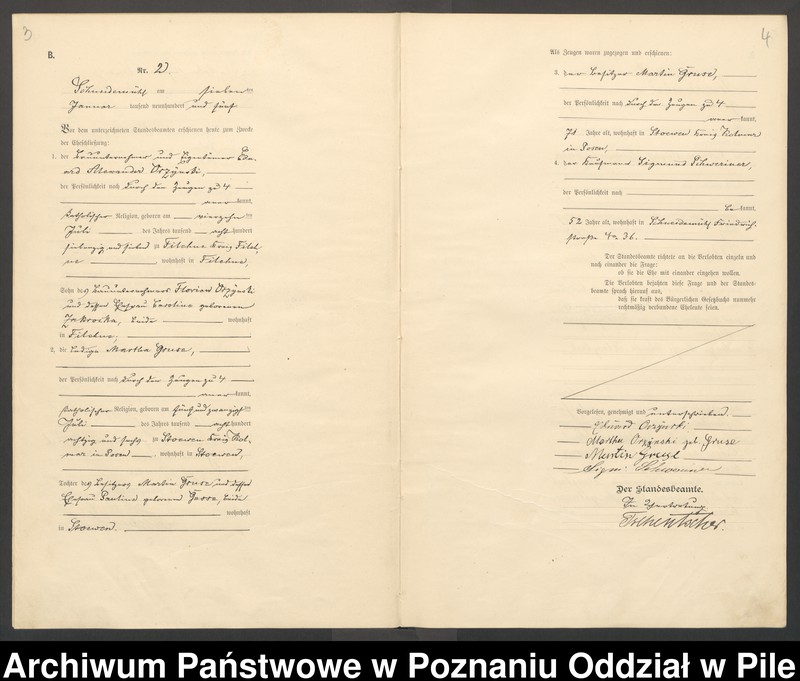 3
B.
Nr. 2.
Schneidemühl am sieben ten
Januar tausend neunhundert und fünf
Vor dem unterzeichneten Standesbeamten erschienen heute zum Zweck
der Eheschließung:
1. der Bauunternehmer und Eigentümer Edu-
ard Alexander Orzynski,
der Persönlichkeit nach durch den Zeugen zu 4
aner kannt,
katholischer Religion, geboren am vierzehn ten
Juli des Jahres tausend acht hundert
siebenzig und sieben zu Filehne Kreis Fileh-
ne, wohnhaft in Filehne,
Sohn des Bauunternehmers Florian Orzynski
und dessen Ehefrau Caroline geborenen
beide wohnhaft
in Filehne;
2. die ledige Martha Gruse,
der Persönlichkeit nach durch den Zeugen zu 4
aner kannt,
katholischer Religion, geboren am fünf und zwanzigs ten
Juli des Jahres tausend acht hundert
achtzig und sechs zu Stoewen Kreis Kol-
mar in Posen, wohnhaft in Stoewen,
Tochter des Besitzers Martin Gruse und dessen
Ehefrau Pauline geborenen beide
wohnhaft
in Stoewen.
4
Als Zeugen waren zugezogen und erschienen:
3. der Besitzer Martin Gruse,
der Persönlichkeit nach durch den Zeugen zu 4
aner kannt,
Jahre alt, wohnhaft in Stoewen Kreis Kolmar
in Posen,
4. der Kaufmann Sigmund Schweriner,
der Persönlichkeit nach
be kannt,
52 Jahre alt, wohnhaft in Schneidemühl Friedrich-
straße No 36.
Der Standesbeamte richtete an die Verlobten einzeln und
nach einander die Frage:
ob sie die Ehe mit einander eingehen wollen.
Die Verlobten bejahten diese Frage und der Standes-
beamte sprach hierauf aus,
daß sie kraft des Bürgerlichen Gesetzbuchs nunmehr
rechtmäßig verbundene Eheleute seien.
Vorgelesen, genehmigt und unterschrieben.
Eduard Orzynski
Martha Orzynski geb. Gruse
Martin
Sigm. Schweriner
Der Standesbeamte.
In Vertretung
Tschentscher.
Archiwum Państwowe w Poznaniu Oddział w Pile